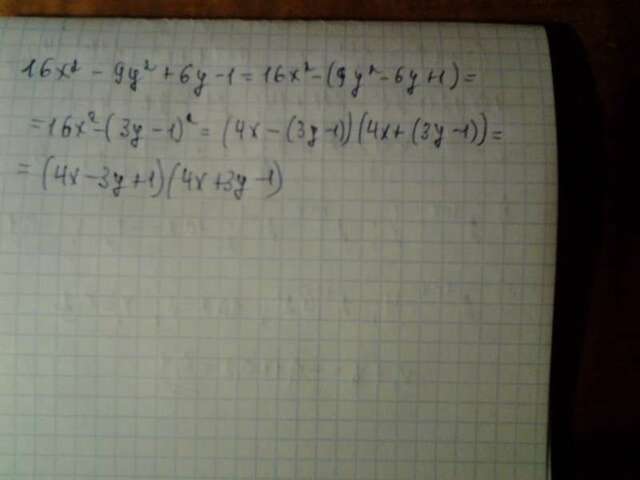 16x² - 9y² + 6y - 1 = 16x² - (9y² - 6y + 1) =
= 16x² - (3y - 1)² = (4x - (3y - 1))(4x + (3y - 1)) =
= (4x - 3y + 1)(4x + 3y - 1)